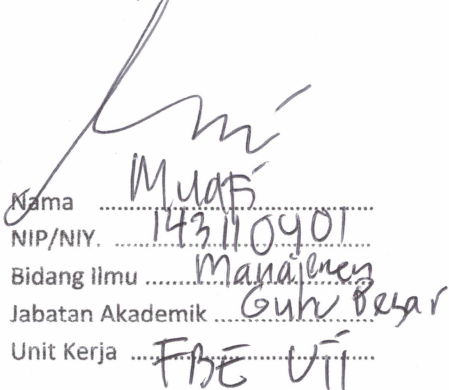 Nama ........ Muafi
NIP/NIY. ........ 143110401
Bidang Ilmu ........ Manajemen
Jabatan Akademik ........ Guru Besar
Unit Kerja ........ FBE UII